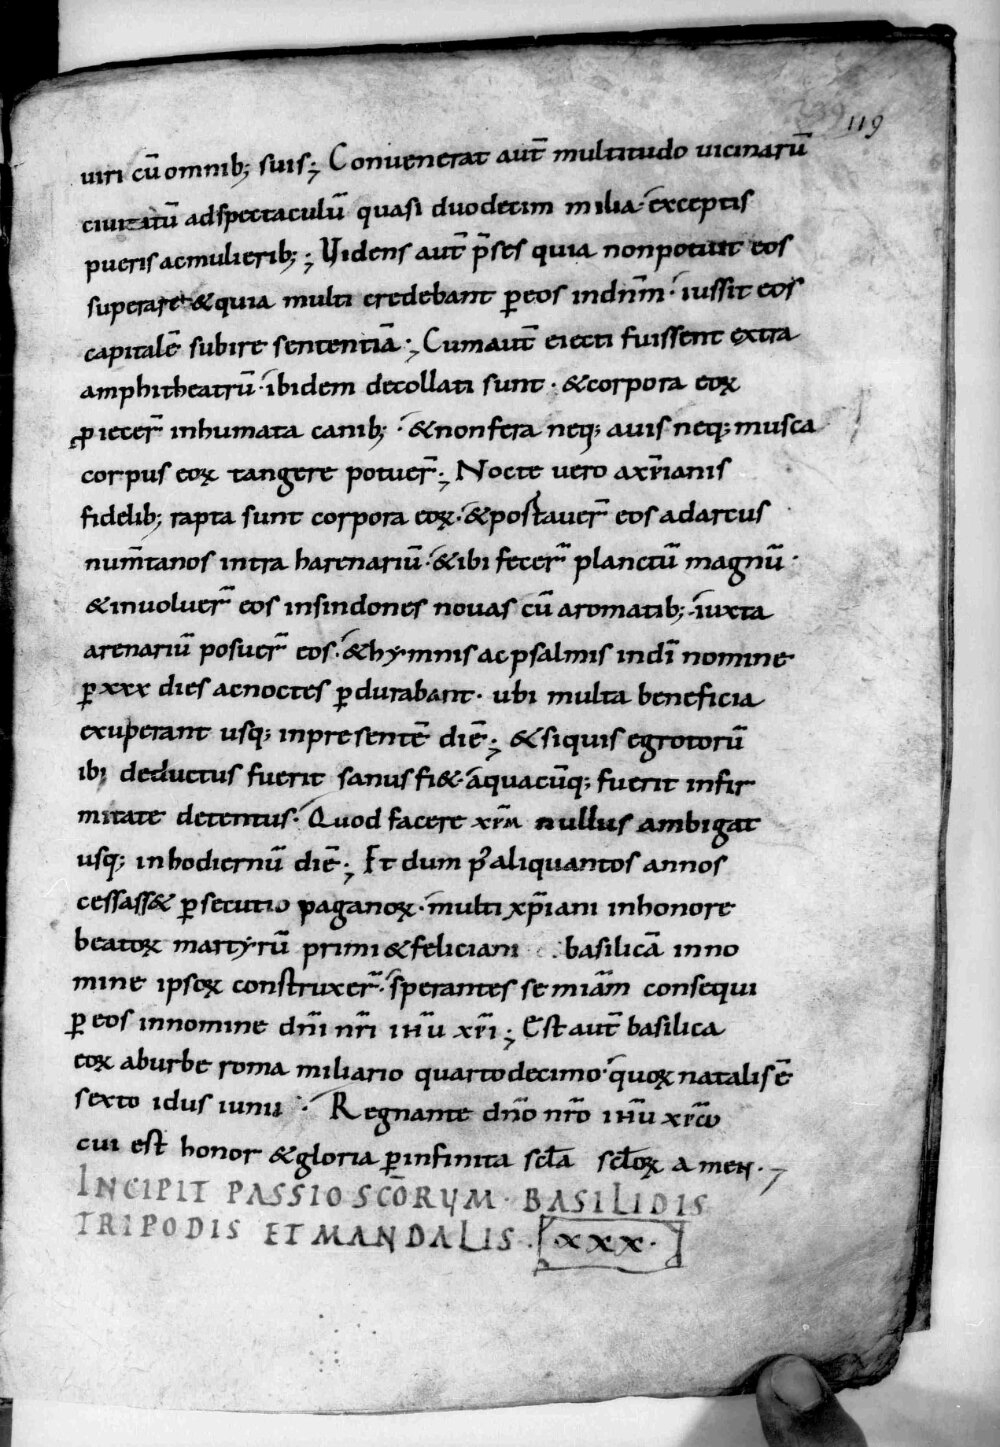 119
uiri cū omnib; suis; Conuenerat aut̄ multitudo uicinarū
ciuitatū adspectaculū quasi duodecim milia· exceptis
pueris acmulierib;; Uidens aut̄ p̄ses quia nonpotuit eos
superare· &quia multi credebant ꝑeos indn̄m· iussit eos
capitalē subire sententiā·; Cumaut̄ eiecti fuissent extra
amphitheatrū· ibidem decollati sunt· &corpora eoꝝ
ꝓiecer̄ inhumata canib;· &nonfera neq; auis neq; musca
corpus eoꝝ tangere potuer̄·; Nocte uero axr̄ianis
fidelib; rapta sunt corpora eoꝝ· &postauer̄ eos adarcus
num̄tanos intra harenariū· &ibi fecer̄ planctū magnū·
&inuoluer̄ eos insindones nouas cū aromatib;· iuxta
arenariū posuer̄ eos· &hymnis acpsalmis indī nomine
ꝑxxx dies acnoctes ꝑdurabant· ubi multa beneficia
exuperant usq; inpresentē diē·; &siquis egrotorū
ibi deductus fuerit sanus fi&· aquacūq; fuerit infir
mitate detentus· Quod facere xr̄m nullus ambigat
usq; inhodiernū diē·; Et dum p̄ aliquantos annos
cessass& ꝑsecutio paganoꝝ· multi xp̄iani inhonore
beatoꝝ martyrū primi &feliciani basilicā inno
mine ipsoꝝ construxer̄· sperantes se miā̄m consequi
ꝑ eos innomine dn̄i nr̄i ih̄u xr̄i; Est aut̄ basilica
eoꝝ aburbe roma miliario quartodecimo· quoꝝ natalis ē
sexto idus iunii·· Regnante dn̄o nr̄o ih̄u xr̄o
cui est honor &gloria ꝑinfinita scl̄a scl̄oꝝ amen·;
INCIPIT PASSIO SCŌRUM· BASILIDIS
TRIPODIS ET MANDALIS· xxx·